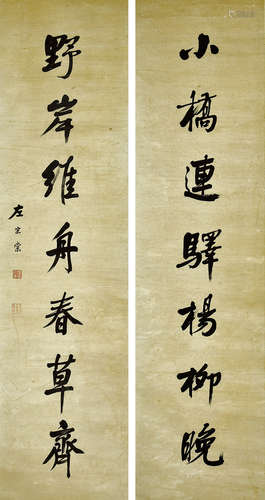 小橋連驛楊柳晚
野岸維舟春草齊
左宗棠